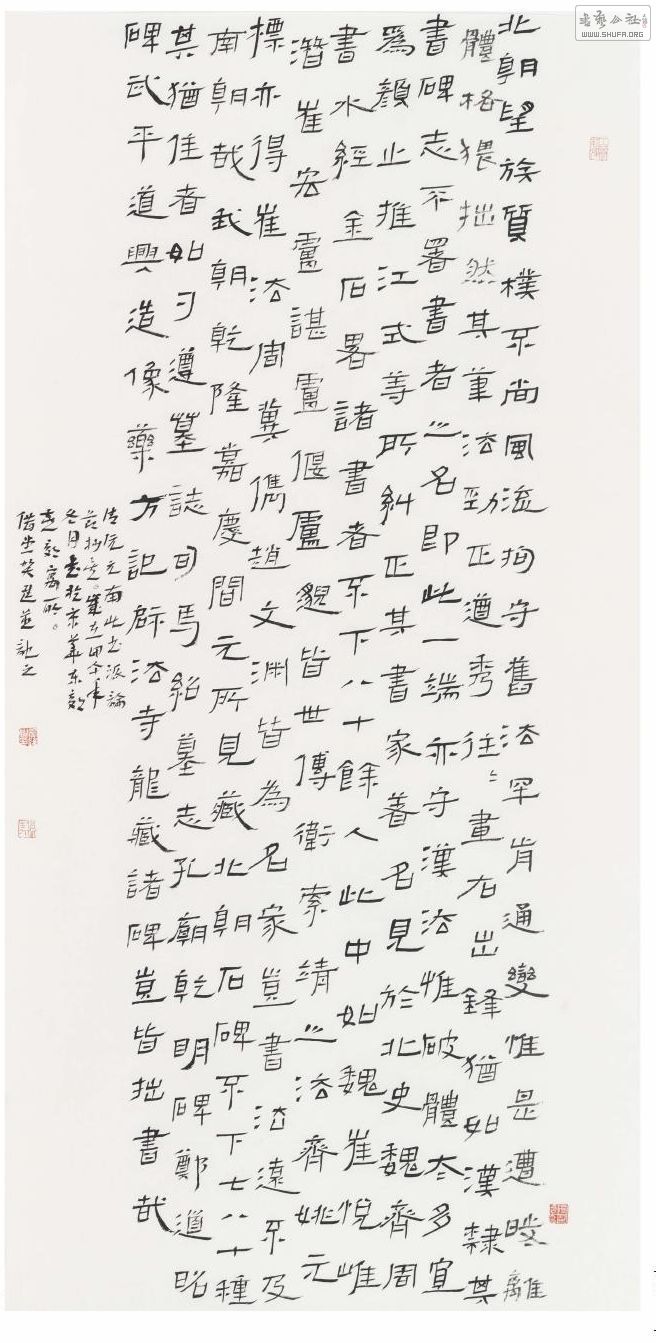 北朝望族質樸不尚風流拘守舊法罕肯通變惟是遭時離
體格猥拙然其筆法勁正遒秀往往畫石出鋒猶如漢隸其
書碑志不署書者之名即此一端亦守漢法惟破體太多宜
為顏止推江式等所糾正其書家著名見於北史魏齊周
書水經金石畧諸書者不下八十餘人此中如魏崔悅崔
潛崔宏盧諶盧偃盧邈皆世傳衛索靖之法齊姚元
標亦得崔法周冀儁趙文渊皆為名家豈書法遠不及
南朝哉我朝乾隆嘉慶間元所見藏北朝石碑不下七八十種
其猶佳者如刁遵墓誌司馬紹墓志孔廟乾明碑鄭道昭
碑武平道興造像藥方記啟法寺龍藏諸碑豈皆拙書哉
清阮元南北書派論
歲在甲午年
冬月書於京華東
並記之
WWW.SHUFA.ORG